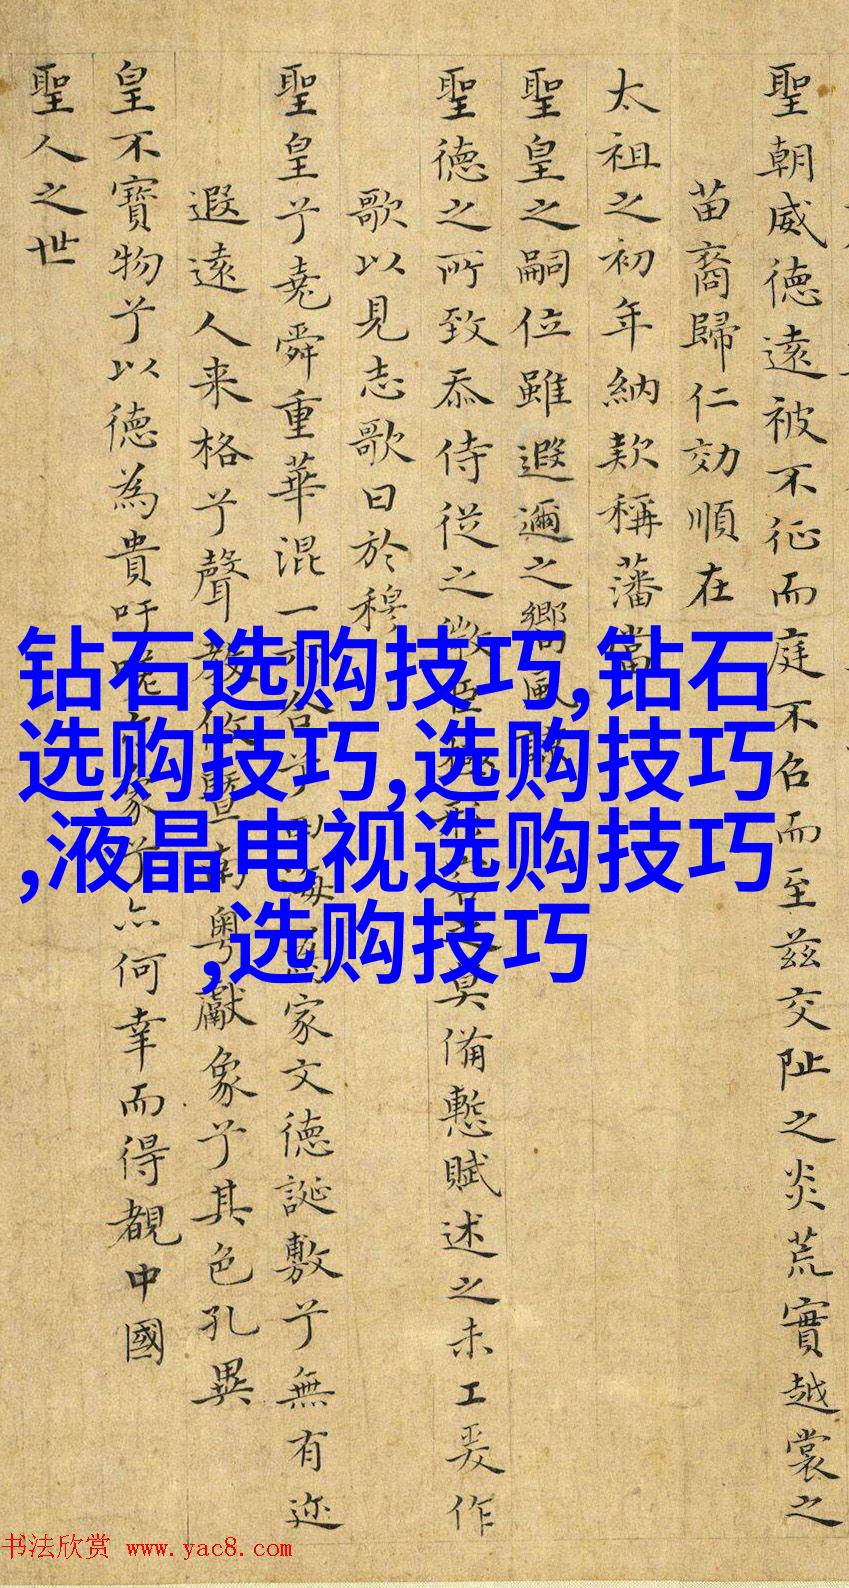 聖朝威德遠被不征而庭不召而至茲交阯之炎荒實越裳之
苗裔歸仁効順在
太祖之初年納款稱藩當
聖皇之嗣位雖遐邇之嚮風
聖德之所致忝侍從之微臣極形容之莫備慙賦述之未工爰作
歌以見志歌曰於穆
聖皇兮堯舜重華混一六合兮四海為家文德誕敷兮無有迩
遐遠人来格兮聲教攸暨南粤獻象兮其色孔異
皇不寶物兮以德為貴吁嗟象兮亦何幸而得覩中國
聖人之世
钻石选购技巧,钻石
选购技巧,选购技巧
,液晶电视选购技巧
,选购技巧
书法欣赏 www.yac8.com